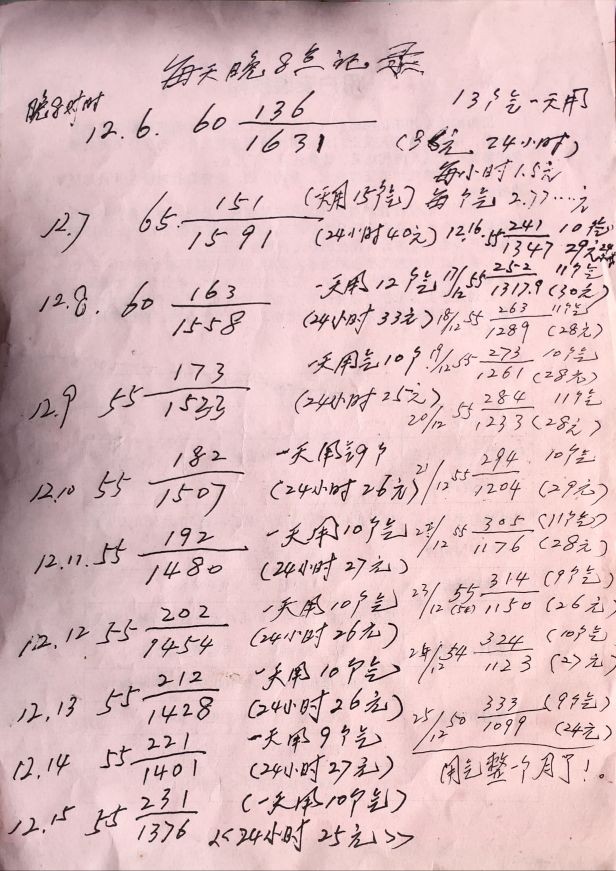 每天晚8点记录
晚8点时
12.6. 60 136/1631 13个气一天用
(35元 24小时)
每小时1.5元
12.7 65 151/1591 (一天用15个气) 每个气 2.77……元
(24小时40元)
12.8. 60 163/1558 一天用12个气
(24小时33元)
12.9 55 173/1533 一天用气10个
(24小时25元)
12.10 55 182/1507 一天用气9个
(24小时26元)
12.11. 55 192/1480 一天用10个气
(24小时27元)
12.12 55 202/1454 一天用10个气
(24小时26元)
12.13 55 212/1428 一天用10个气
(24小时26元)
12.14 55 221/1401 一天用9个气
(24小时27元)
12.15 55 231/1376 (一天用10个气)
<<24小时25元>>
12.16. 55 241/1347 10个气 29元
17/12 55 252/1317.9 11个气 (30元)
18/12 55 263/1289 11个气 (28元)
19/12 55 273/1261 10个气 (28元)
20/12 55 284/1233 11个气 (28元)
21/12 55 294/1204 10个气 (29元)
22/12 55 305/1176 (11个气) (28元)
23/12 55 (54) 314/1150 (9个气) (26元)
24/12 54 324/1123 (10个气) (27元)
25/12 50 333/1099 (9个气) (24元)
用气整个月了!。